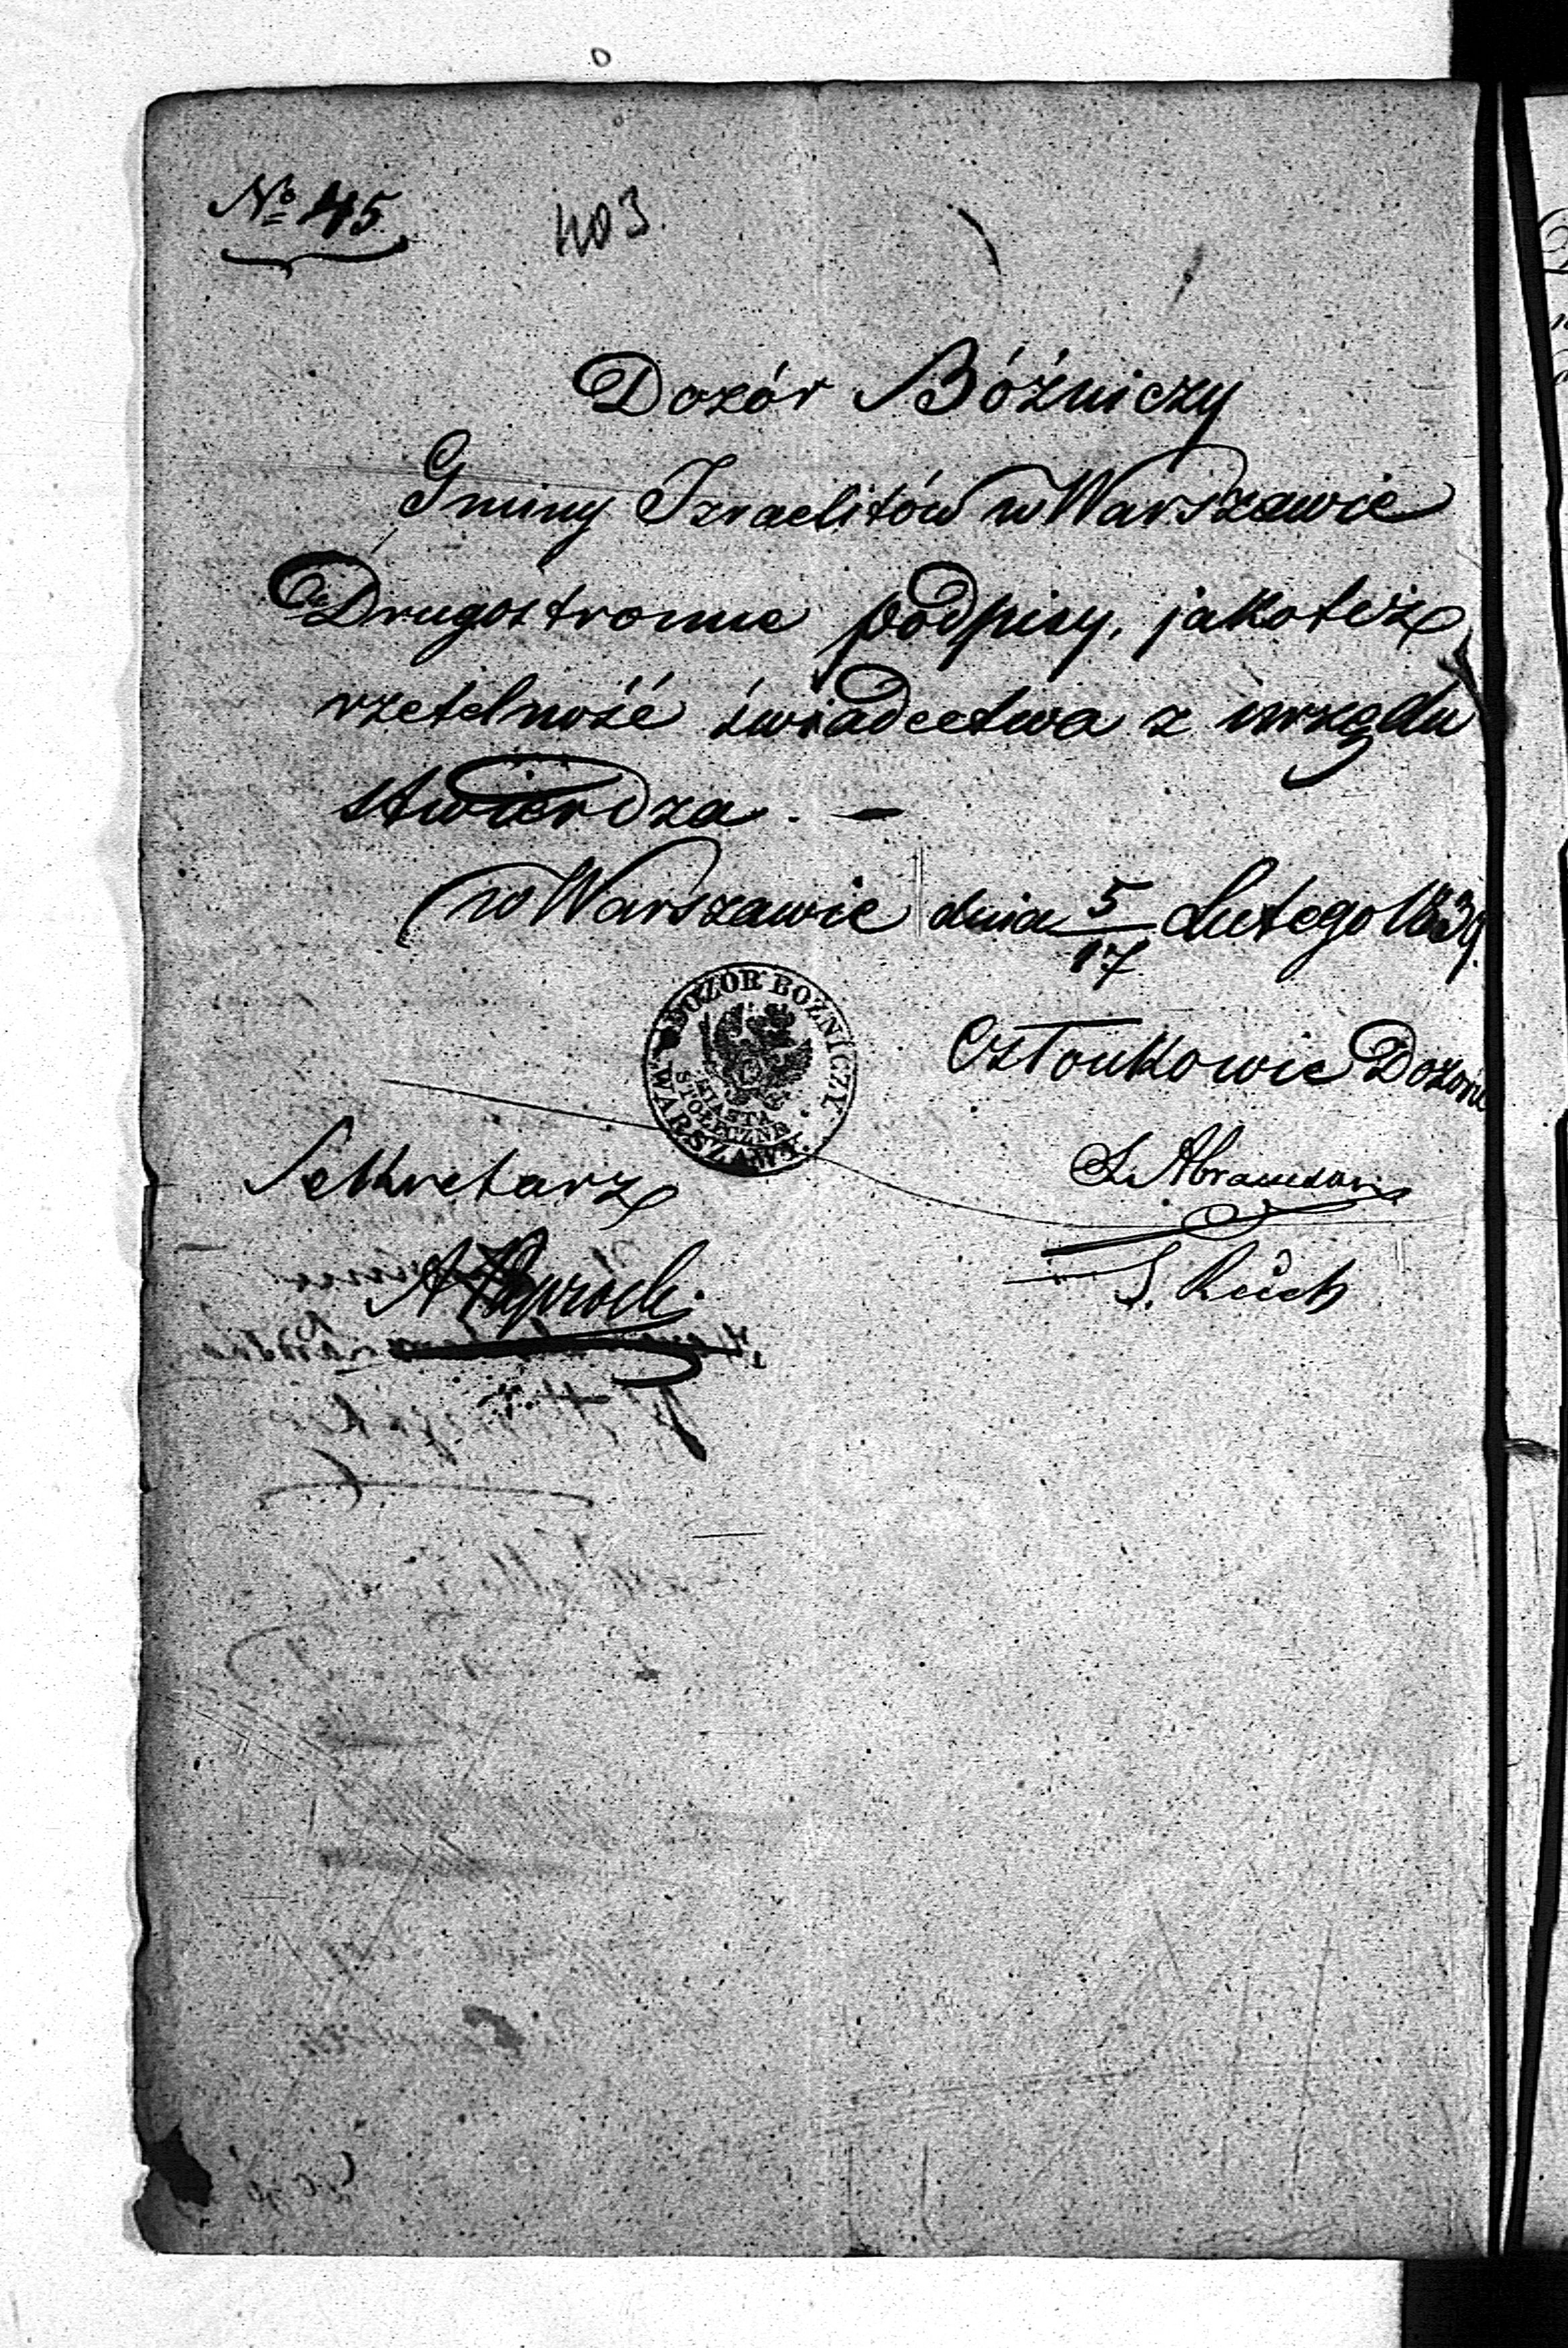 № 45
403.
Dozór Bóźniczy
Gminy Izraelitów w Warszawie
Drugostronne podpisy, jakoteż
rzetelność świadectwa z urzędu
stwierdza. —
w Warszawie dnia 5/17 Lutego 1839.
DOZOR BOZNICZY
MIASTA
STOŁECZNE
WARSZAWY
Członkowie Dozoru
Sekretarz
Abramson
S.